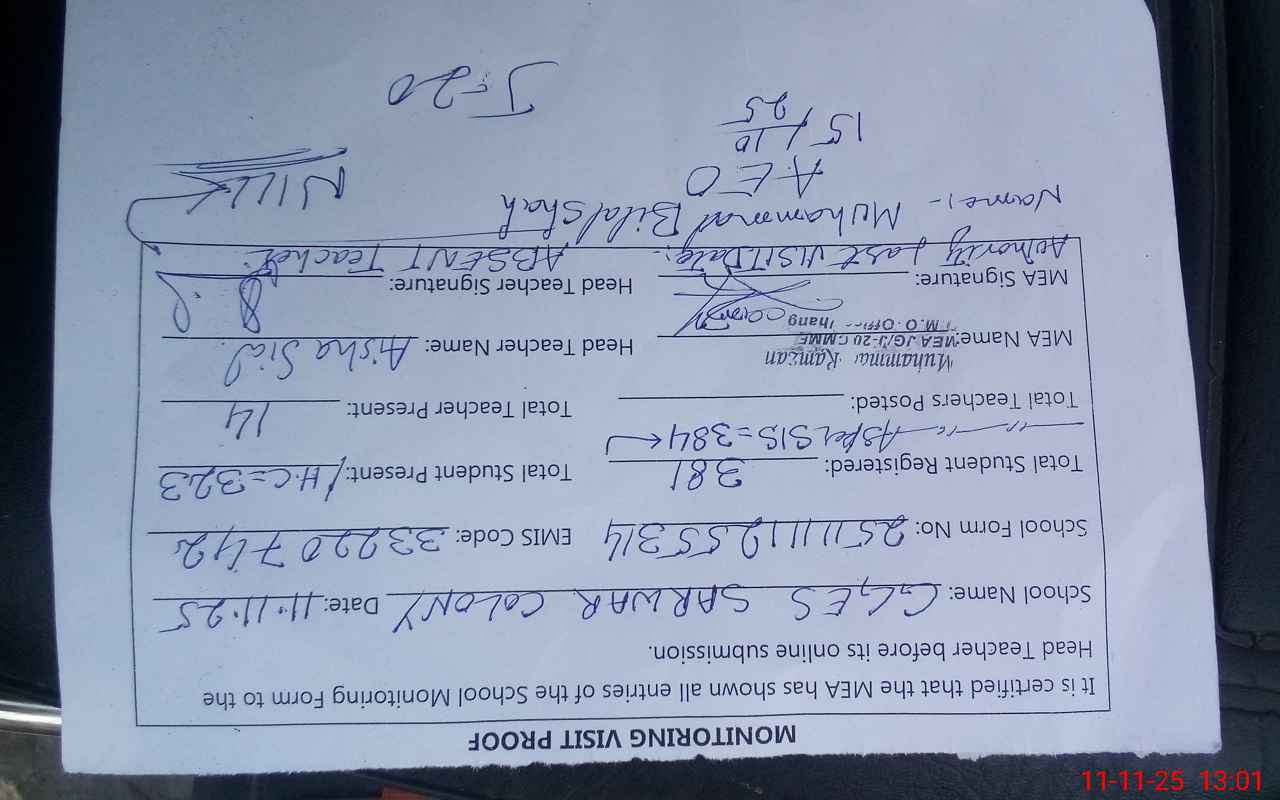 MONITORING VISIT PROOF
It is certified that the MEA has shown all entries of the School Monitoring Form to the
Head Teacher before its online submission.
School Name: GGES SARWAR COLONY Date: 11.11.25
School Form No: 25111111255314 EMIS Code: 33220742
Total Student Registered: 381 Total Student Present: H.C=323
As Per SIS=384
Total Teachers Posted: Total Teacher Present: 14
Muhammad Ramzan
MEA Name: MEA JG/J-20 CMME Head Teacher Name: Aisha Sial
T.M.O. Office Jhang
MEA Signature: Head Teacher Signature:
Authority Last VISIT Date:- ABSENT Teacher:
Name:- Muhammad Bilal Shah NILL
AEO
15/10/25
J-20
11-11-25 13:01